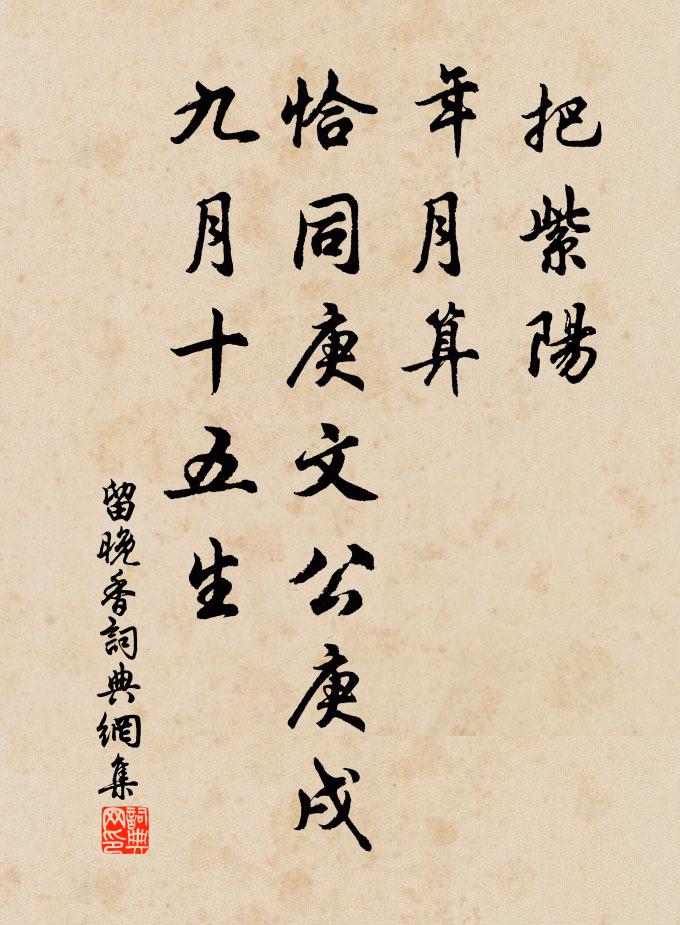 把紫陽
年月算
恰同庚文公庚戌
九月十五生
留晚香詞典網集
詞典网印